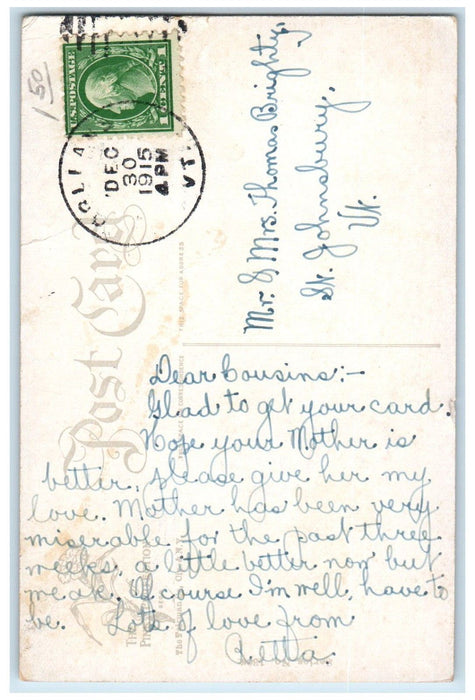 1 50
U.S. POSTAGE
1 CENT 1
DEC
30
1915
4 PM
VT.
Post Card
THIS SPACE FOR ADDRESS
Mr. & Mrs. Thomas Brighty,
St. Johnsbury,
Vt.
Dear Cousins:-
Glad to get your card.
Hope your Mother is
better, please give her my
love. Mother has been very
miserable for the past three
weeks, a little better now but
weak. Of course I'm well, have to
be. Lots of love from
Retta